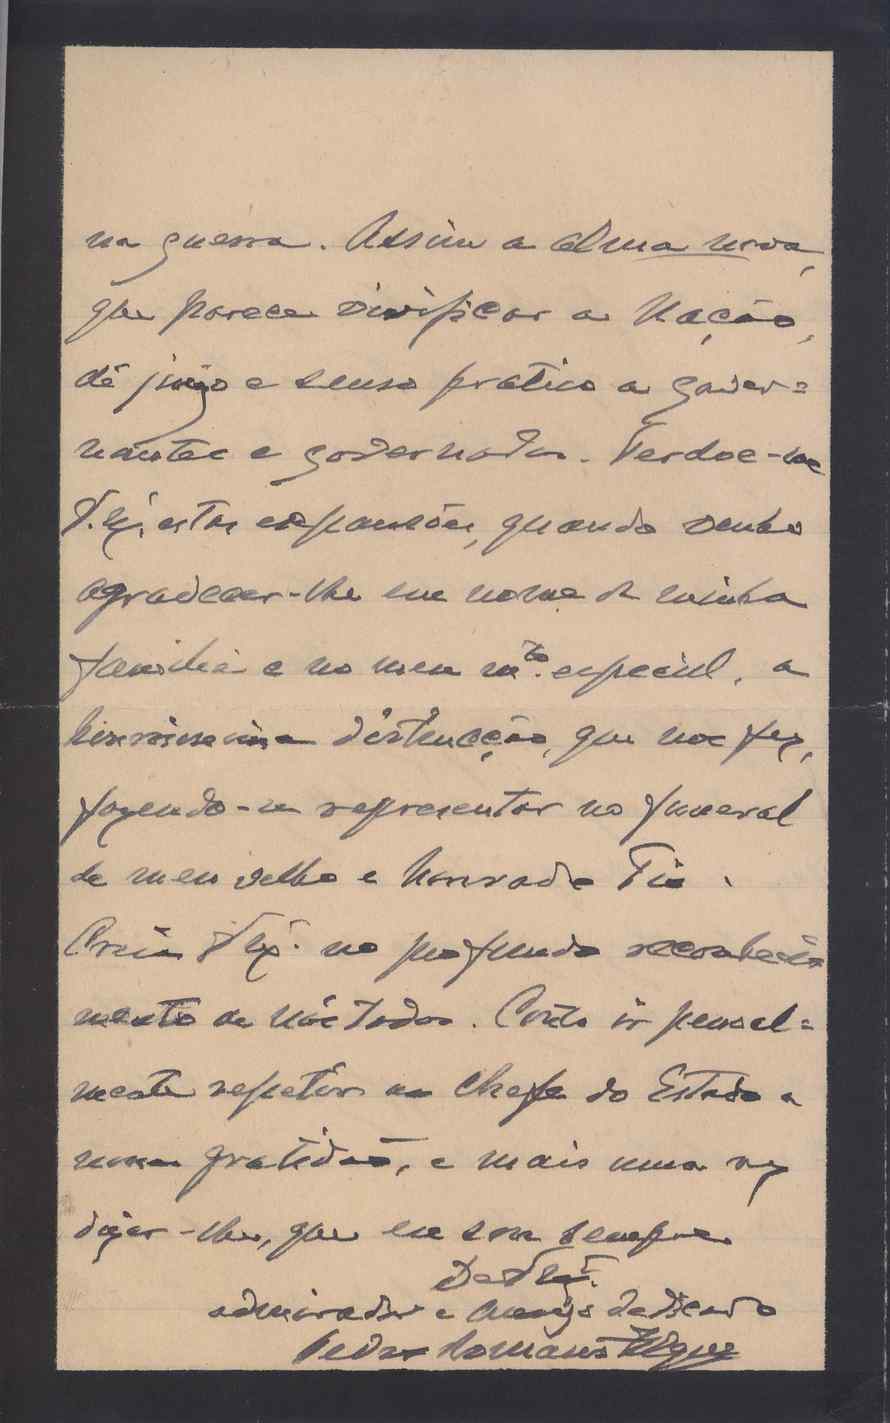 na guerra. Assim a alma nova,
que parece vivificar a Nação,
dê juizo e senso pratico a gover=
nantes e governados. Perdoe-me
V. Ex.ª estas expansões, quando venho
agradecer-lhe em nome de minha
familia e no meu m.to especial, a
honrosissima distincção, que nos fez,
fazendo-se representar no funeral
de meu velho e honrado Tio.
Creia V. Ex.ª no profundo reconheci
mento de nós todos. Conto ir pessoal=
mente repetir ao Chefe do Estado a
nossa gratidão, e mais uma vez
dizer-lhe, que eu sou sempre
De V. Ex.ª
admirador e amigo dedicado
Pedro Romano Folque